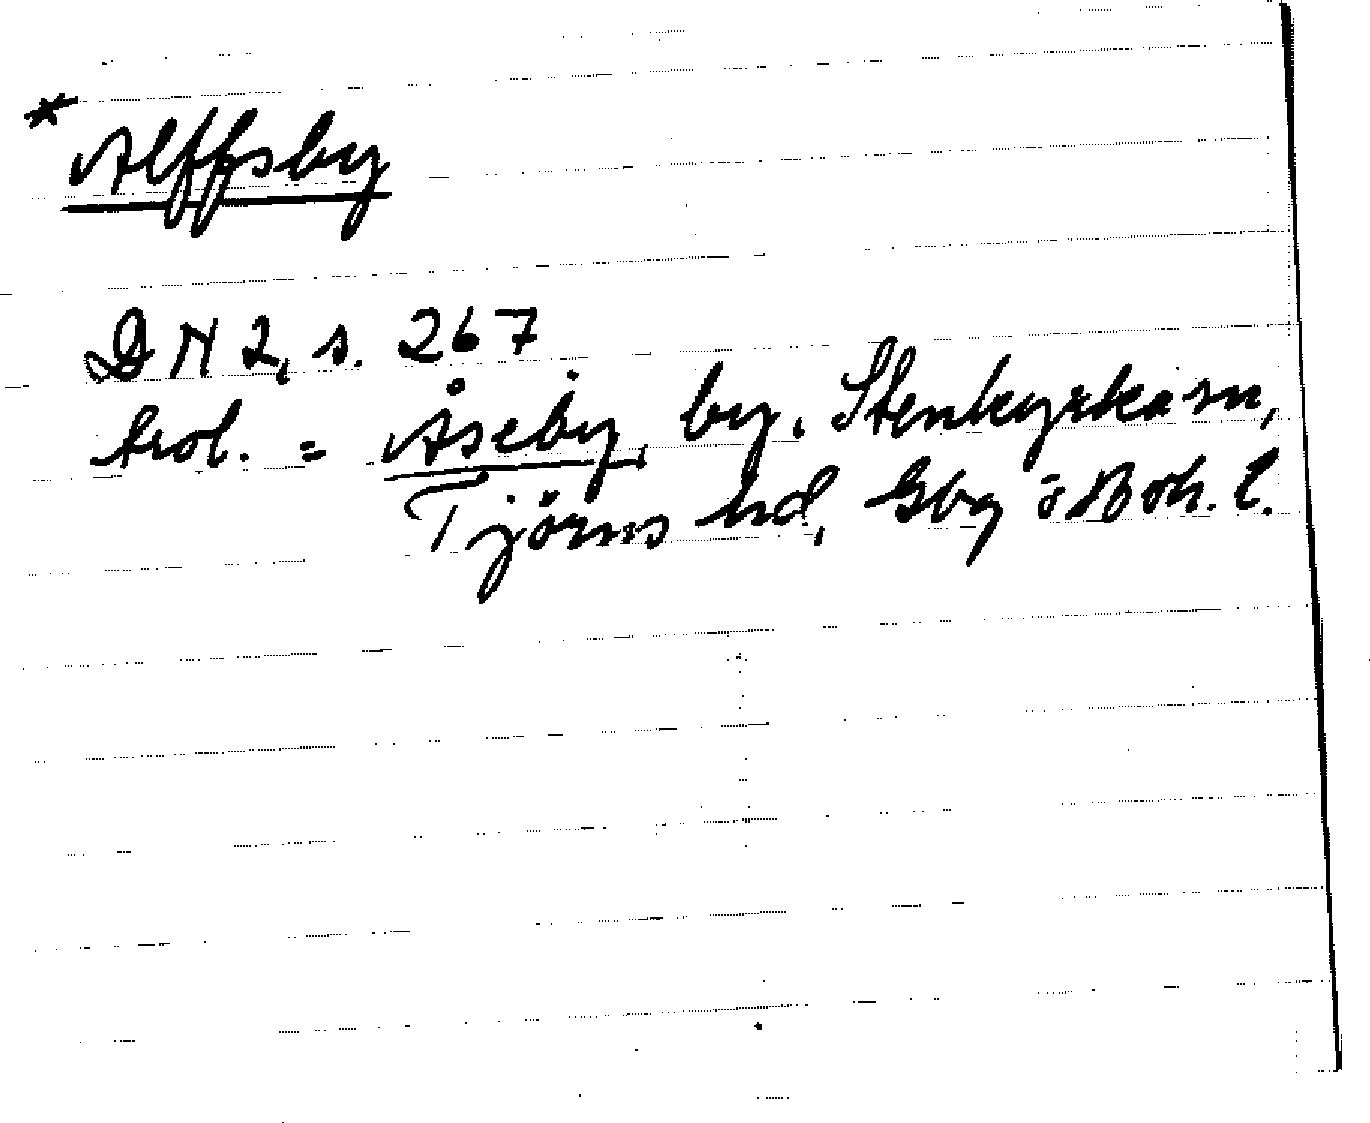 * Alffsby
DN 2, s. 267
trol. = Åseby, by, Stenkyrka sn,
Tjörns hd, Gbg o Boh. l.